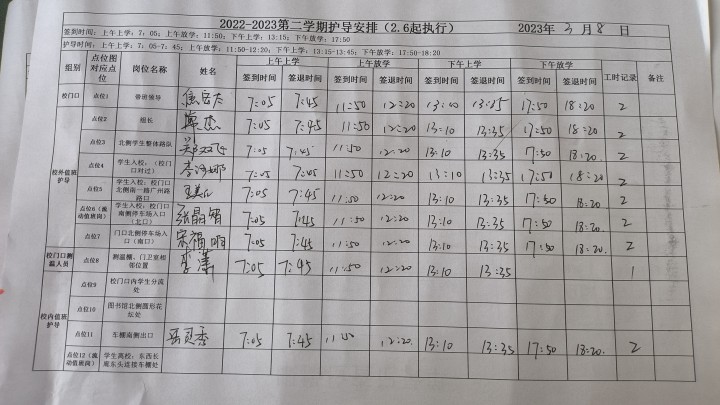 2022-2023第二学期护导安排（2.6起执行） 2023年3月8日
签到时间：上午上学：7：05；上午放学：11:50；下午上学：13:15；下午放学：17:50
护导时间：上午上学：7：05-7：45；上午放学：11:50-12:20；下午上学：13:15-13:35；下午放学：17:50-18:20
组别 点位图对应点位 岗位名称 姓名 上午上学 上午放学 下午上学 下午放学 工时记录 备注
签到时间 签退时间 签到时间 签退时间 签到时间 签退时间 签到时间 签退时间
校门口 点位1 带班领导 7:05 7:45 11:50 12:20 13:10 17:50 18:20 2
校外值班护导
点位2 组长 7:05 7:45 11:50 12:20 13:10 13:35 17:50 18:20 2
点位3 北侧学生整体路队 7:05 7:45 11:50 12:20 13:10 13:35 17:50 18:20 2
点位4 学生入校：（校门口对过） 7:05 7:05 11:50 12:20 13:10 13:35 17:50 18:20 2
点位5 学生入校：校门口北侧南一路广州路路口 7:05 7:45 11:50 12:20 13:10 13:35 17:50 18:20 2
点位6（流动值班岗） 学生入校：校门口南侧停车场入口（北口） 张晶 7:05 7:45 11:50 12:20 13:10 13:35 17:50 18:20 2
点位7 门口北侧停车场入口（南口） 宋福明 7:05 7:45 11:50 12:20 13:10 13:35 17:50 18:20 2
校门口测温人员 点位8 测温棚、门卫室相邻位置 李潇 7:05 7:45 11:50 12:20 13:10 13:35 1
校内值班护导
点位9 校门口内学生分流处
点位10 图书馆北侧圆形花坛处
点位11 车棚南侧出口 7:05 7:45 11:50 12:20 13:10 13:35 17:50 18:20 2
点位12（流动值班岗） 学生离校：东西长廊东头连接车棚处